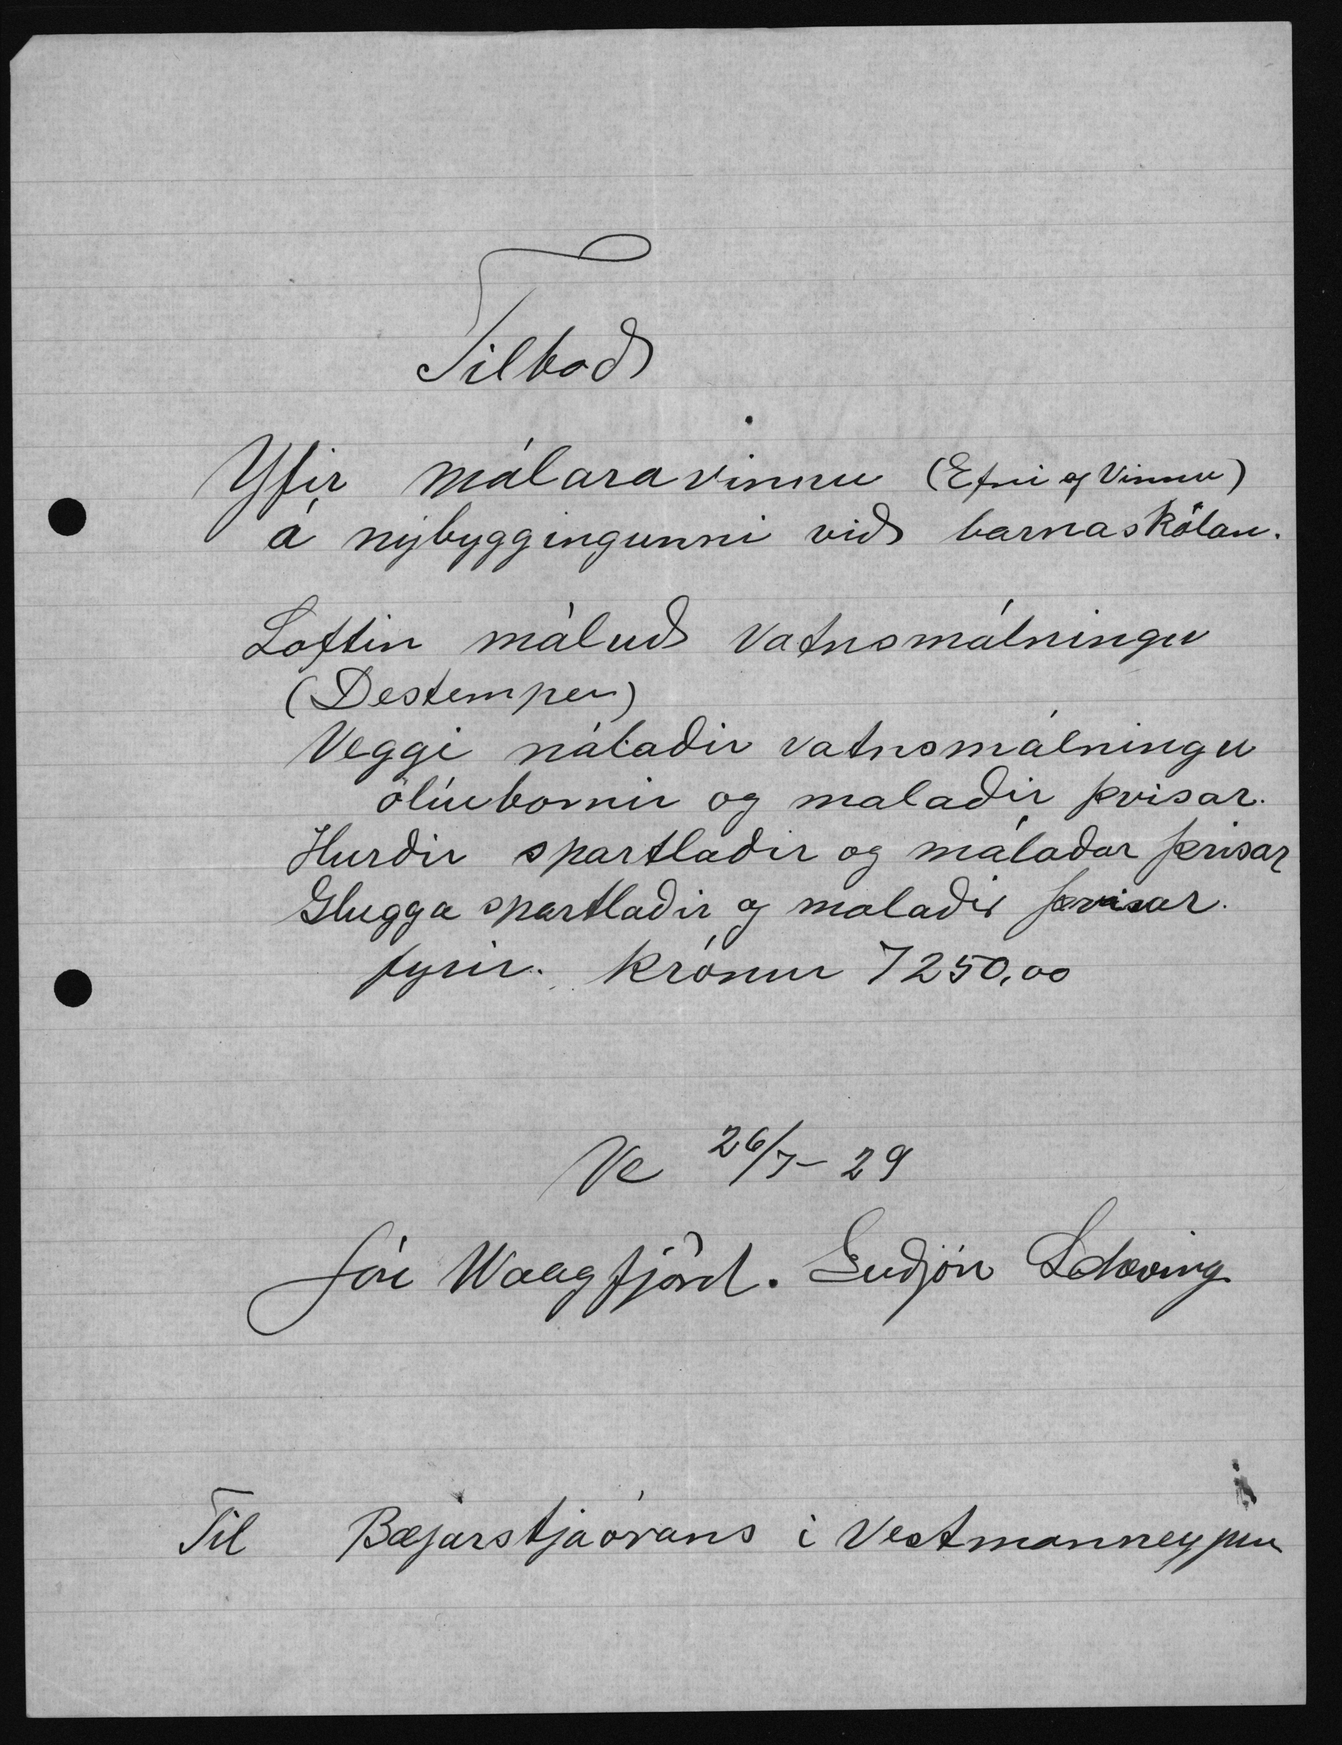 Tilboð
Yfir málaravinnu (Efni og Vinnu)
á nýbyggingunni við barnaskólan.
Loftin máluð vatnsmálningu
(Destemper)
Veggi málaðir vatnsmálningu
olíubornir og malaðir þvisar.
Hurðir spartlaðir og málaðar þvisar
Glugga spartlaðir og malaðir þvisar.
fyrir. krónur 7250,00
Ve 26/7 - 29
Jón Waagfjörd. Guðjón Scheving
Til Bæjarstjaórans i Vestmanneyjum